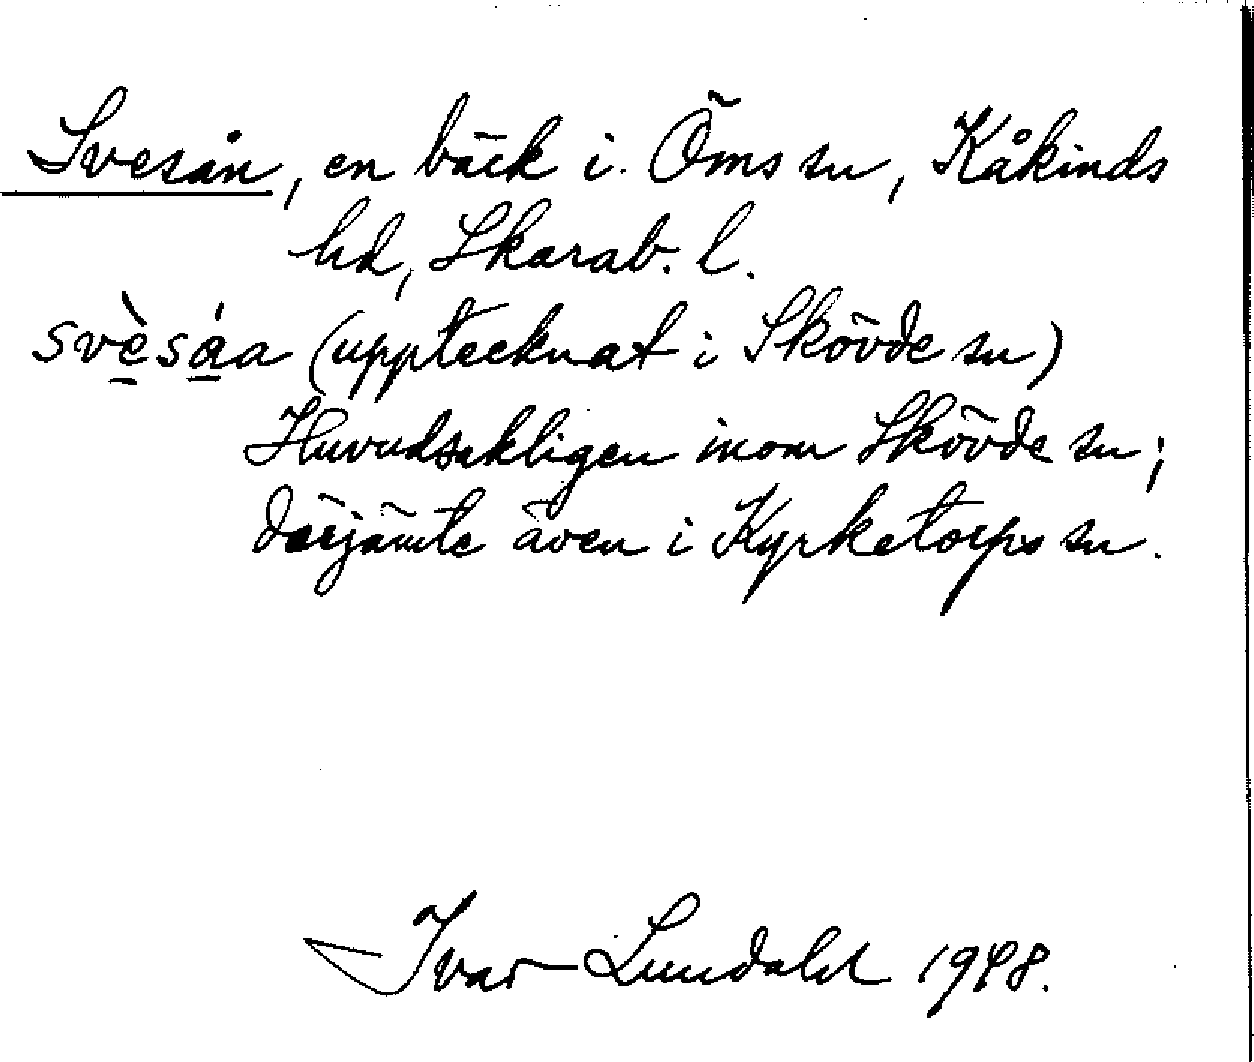 Svesån, en bäck i Öms sn, Kåkinds
hd, Skarab. l.
svè̱sá̱a (upptecknat i Skövde sn)
Huvudsakligen inom Skövde sn;
därjämte även i Kyrketorps sn.
Ivar Lundahl 1948.